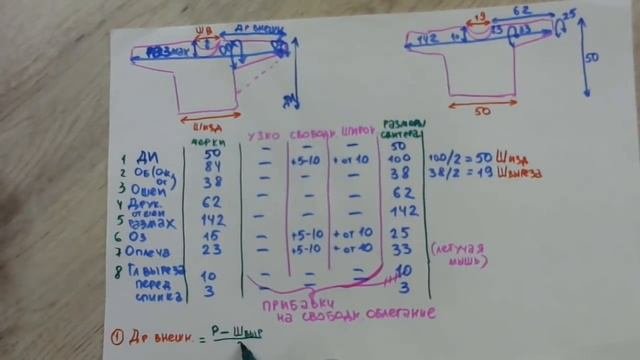 ШВ
Др внешн.
размах
ДИ
Шизд
19
62
25
142
10
23
33
50
50
мерки
узко
свободн
широк
размеры свитера
1 ДИ 50 – – – 50
2 Об(ок, ог) 84 – +5-10 + от 10 100
100/2 = 50 Шизд
3 Ошеи 38 – – – 38
38/2 = 19 Швыреза
4 Друк. от шеи 62 – – – 62
5 размах 142 – – – 142
6 Оз 15 – +5-10 + от 10 25
7 Оплеча 23 – +5-10 + от 10 33
(летучая мышь)
8 Гл выреза
перед 10 – – – 10
спинка 3 – – 3
прибавки
на свободн облегание
1 Др внешн. = Р – Швыр